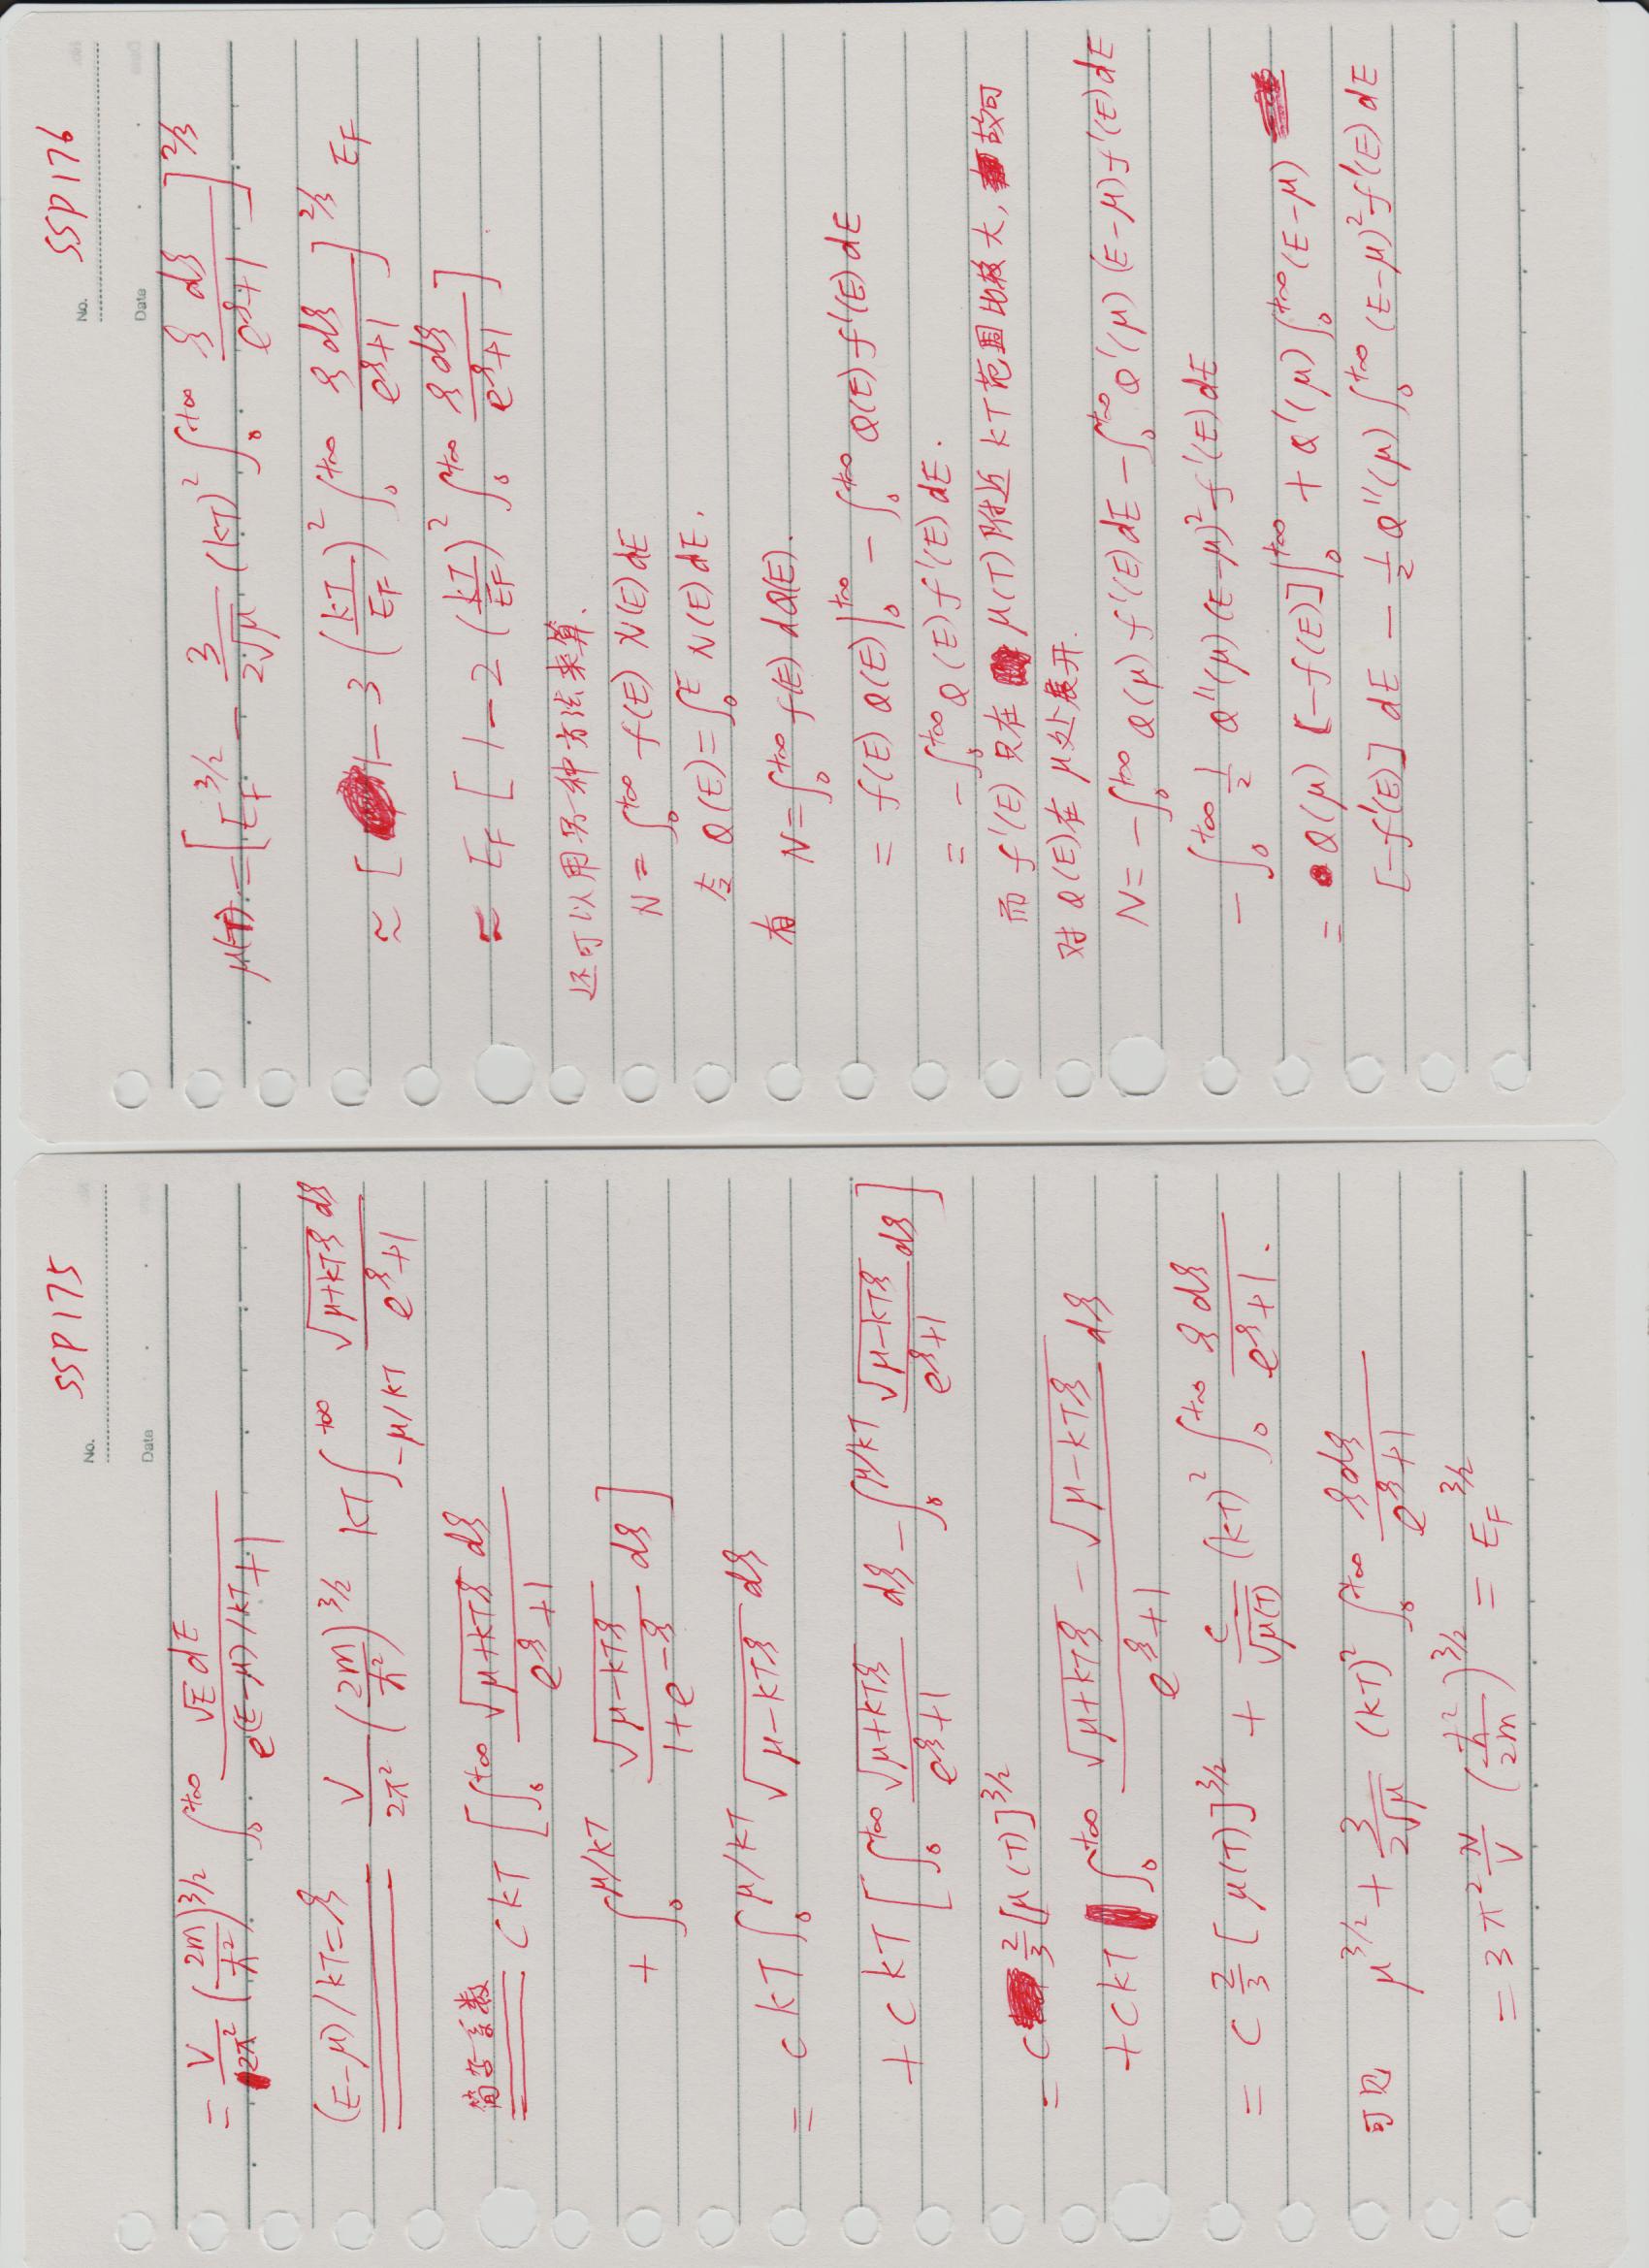 No. SSP175
Date
= V/2π² (2m/ħ²)^{3/2} ∫_0^{+∞} √E dE / (e^{(E-μ)/kT}+1)
(E-μ)/kT=ξ V/2π² (2m/ħ²)^{3/2} kT ∫_{-μ/kT}^{+∞} √(μ+kTξ) dξ / (e^ξ+1)
简写系数 CkT [∫_0^{+∞} √(μ+kTξ) dξ / (e^ξ+1)
+ ∫_0^{μ/kT} √(μ-kTξ) / (1+e^{-ξ}) dξ]
= CkT ∫_0^{μ/kT} √(μ-kTξ) dξ
+ CkT [∫_0^{+∞} √(μ+kTξ) / (e^ξ+1) dξ - ∫_0^{μ/kT} √(μ-kTξ) / (e^ξ+1) dξ]
= C 2/3 [μ(T)]^{3/2}
+ CkT ∫_0^{+∞} (√(μ+kTξ) - √(μ-kTξ)) / (e^ξ+1) dξ
= C 2/3 [μ(T)]^{3/2} + C/√μ(T) (kT)² ∫_0^{+∞} ξ dξ / (e^ξ+1).
可见 μ^{3/2} + 3/(2√μ) (kT)² ∫_0^{+∞} ξdξ / (e^ξ+1)
= 3π² N/V (ħ²/2m)^{3/2} = E_F^{3/2}
No. SSP176
Date
μ(T) = [E_F^{3/2} - 3/(2√μ) (kT)² ∫_0^{+∞} ξ dξ / (e^ξ+1)]^{2/3}
≈ [1 - 3 (kT/E_F)² ∫_0^{+∞} ξ dξ / (e^ξ+1)]^{2/3} E_F
≈ E_F [1 - 2 (kT/E_F)² ∫_0^{+∞} ξ dξ / (e^ξ+1)].
还可以用另一种方法来算.
N = ∫_0^{+∞} f(E) N(E) dE
令 Q(E) = ∫_0^E N(E) dE.
有 N = ∫_0^{+∞} f(E) dQ(E).
= f(E) Q(E)|_0^{+∞} - ∫_0^{+∞} Q(E) f'(E) dE
= -∫_0^{+∞} Q(E) f'(E) dE.
而 f'(E) 只在 μ(T) 附近 kT 范围比较大, 故可
对 Q(E) 在 μ 处展开.
N = -∫_0^{+∞} Q(μ) f'(E) dE - ∫_0^{+∞} Q'(μ) (E-μ) f'(E) dE
- ∫_0^{+∞} 1/2 Q''(μ) (E-μ)² f'(E) dE
= Q(μ) [-f(E)]|_0^{+∞} + Q'(μ) ∫_0^{+∞} (E-μ)
[-f'(E)] dE - 1/2 Q''(μ) ∫_0^{+∞} (E-μ)² f'(E) dE